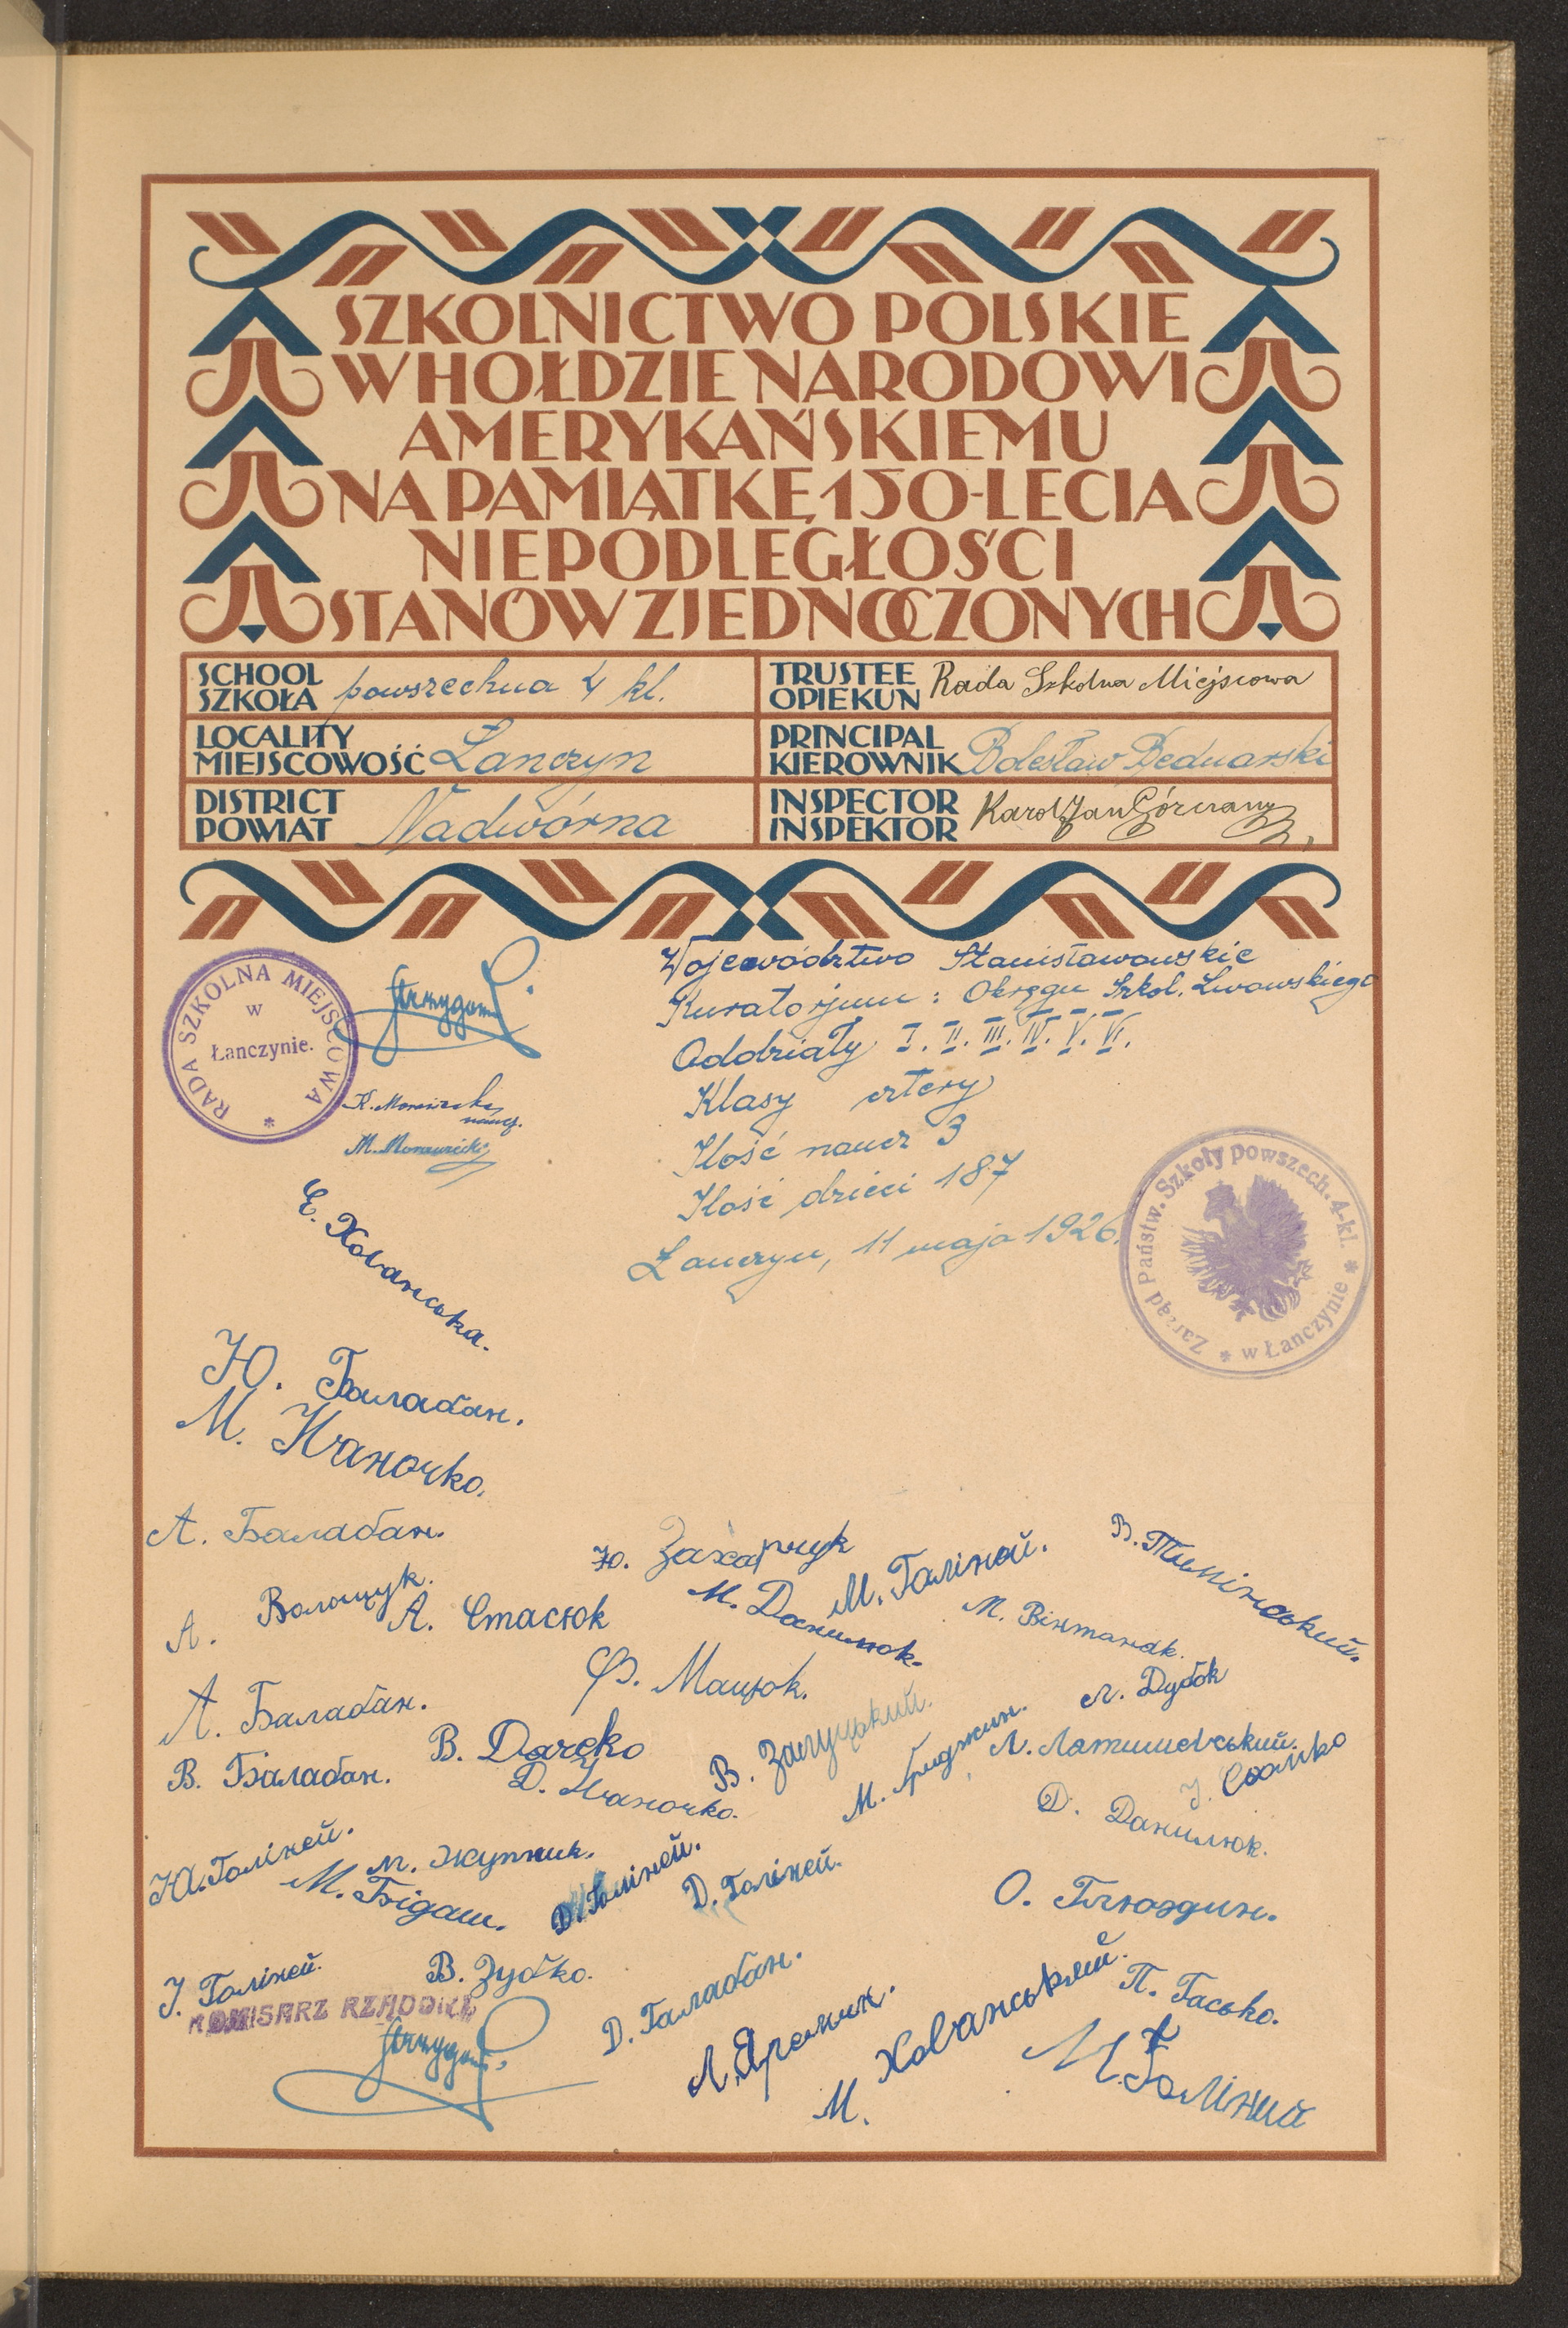 SZKOLNICTWO POLSKIE
W HOŁDZIE NARODOWI
AMERYKAŃSKIEMU
NA PAMIĄTKĘ 150-LECIA
NIEPODLEGŁOŚCI
STANÓW ZJEDNOCZONYCH
SCHOOL
SZKOŁA powszechna 4 kl.
TRUSTEE
OPIEKUN Rada Szkolna Miejscowa
LOCALITY
MIEJSCOWOŚĆ Łanczyn
PRINCIPAL
KIEROWNIK Bolesław Bednarski
DISTRICT
POWIAT Nadwórna
INSPECTOR
INSPEKTOR Karol Jan
RADA SZKOLNA MIEJSCOWA
w
Łanczynie.
Województwo Stanisławowskie
Kuratorjum: Okręgu Szkol. Lwowskiego
Oddziały I. II. III. IV. V. VI.
Klasy cztery
Ilość naucz 3
Ilość dzieci 187
Łanczyn, 11 maja 1926.
Zarząd Państw. Szkoły powszech. 4-kl.
w Łanczynie
K.
M.
Є. Хованська.
Ю. Балабан.
М. Іваночко.
А. Балабан.
А. Волощук.
А. Стасюк
Ю. Захарчук
М. Данилюк.
М. Галіней.
В. Тимінський.
М. Вінтаняк.
А. Балабан.
Ф. Мацюк.
Л. Дубок
В. Балабан.
В. Дачко
Д. Іваночко.
В. Залуцький.
М.
Л. Латишевський.
Д. Данилюк.
Ю. Галіней.
М. Жупник.
М. Бідаш.
Д. Галіней.
Д. Галіней.
О.
І. Галіней.
В. Зубко.
KOMISARZ RZĄDOWY
Д. Балабан.
Л. Яремик.
М. Хованський.
П. Гасько.
М. Галіний